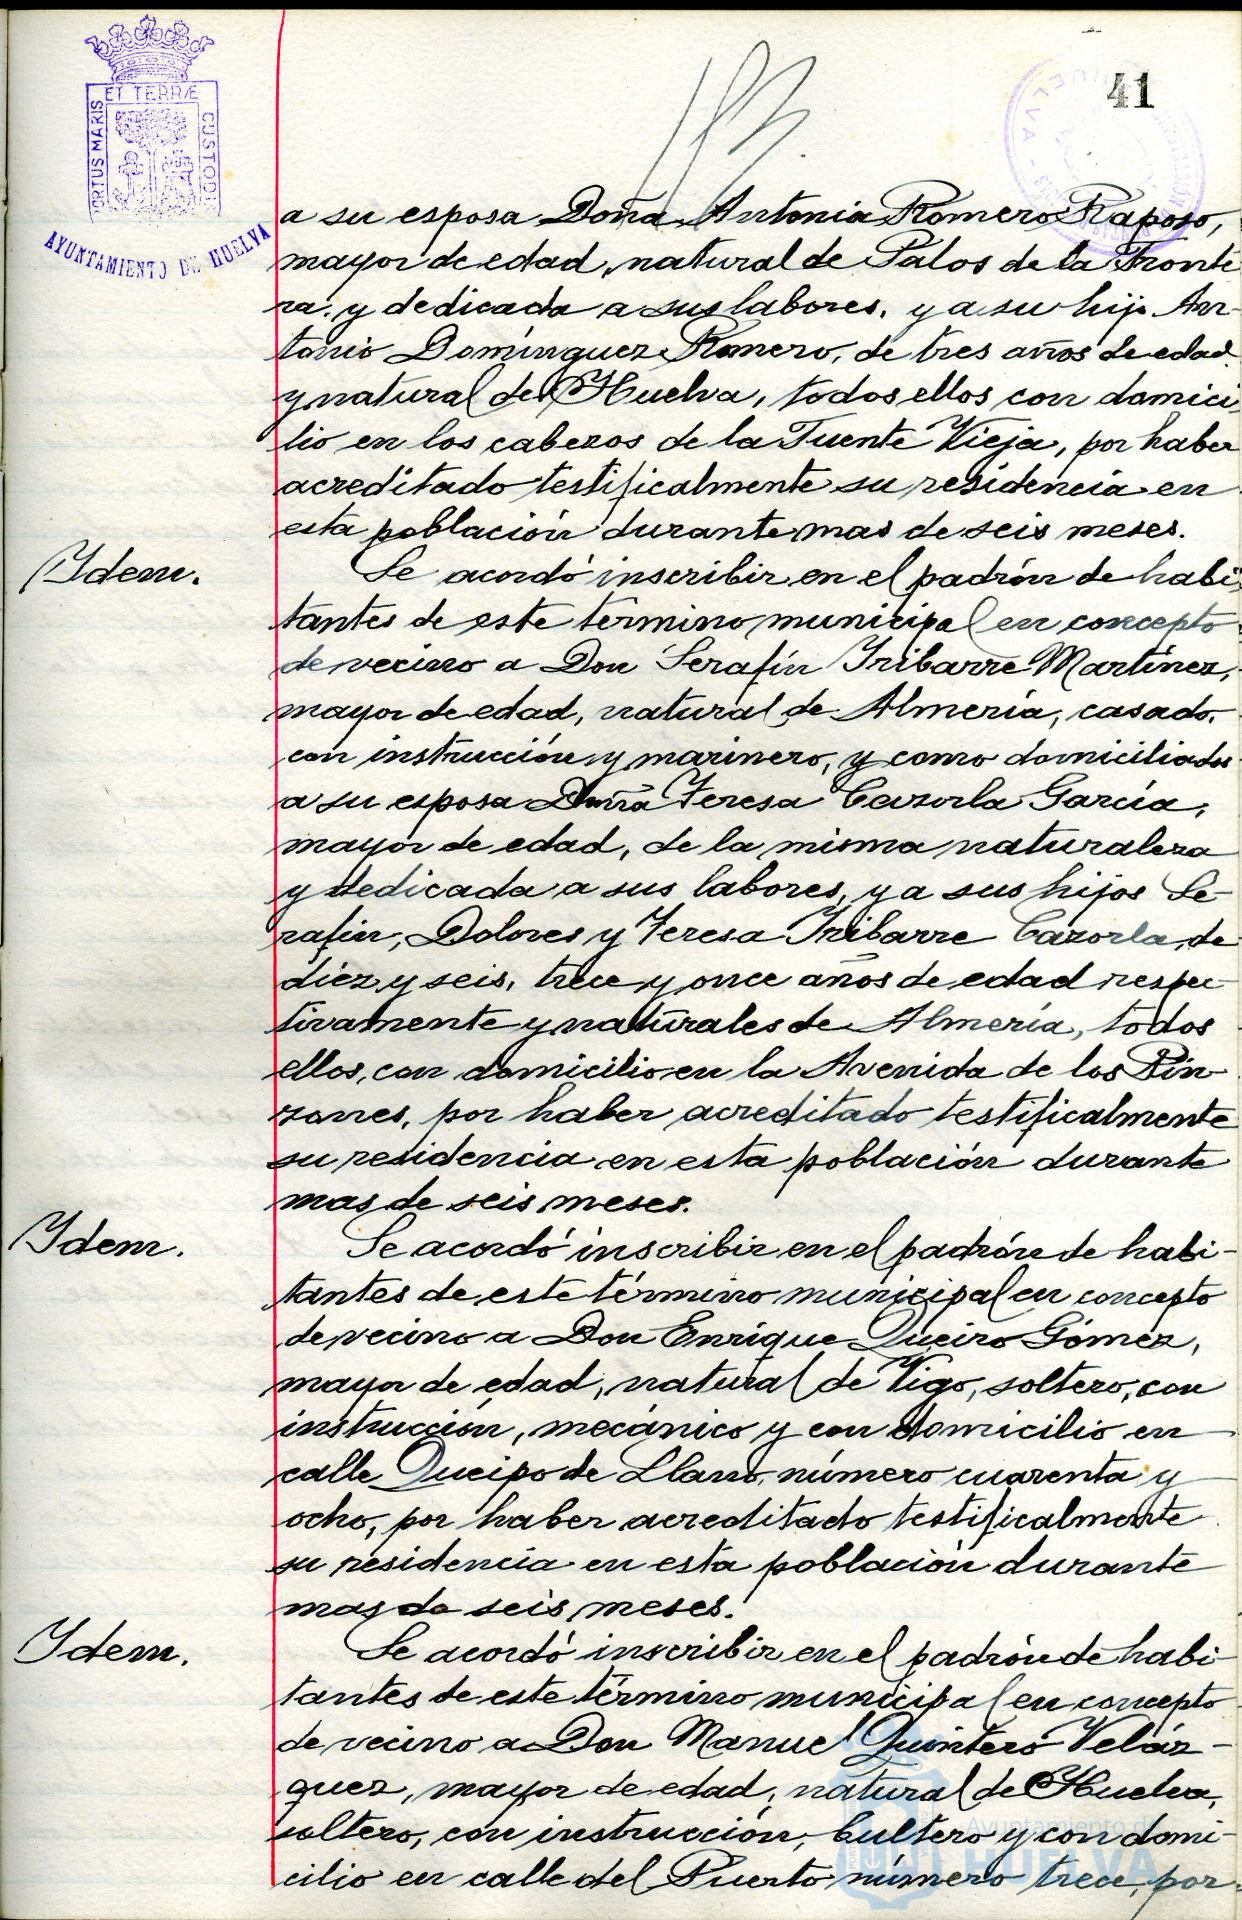 41
ET TERRÆ
PORTUS MARIS
CUSTODIA
AYUNTAMIENTO DE HUELVA
a su esposa Doña Antonia Romero Raposo,
mayor de edad, natural de Palos de la Fronte
ra. y dedicada a sus labores. y a su hijo An-
tonio Domínguez Romero, de tres años de edad
y natural de Huelva, todos ellos con domici-
lio en los cabezos de la Fuente Vieja, por haber
acreditado testificalmente su residencia en
esta población durante mas de seis meses.
Idem.
Se acordó inscribir en el padrón de habi-
tantes de este termino municipal en concepto
de vecino a Don Serafín Iribarre Martínez,
mayor de edad, natural de Almería, casado,
con instrucción y marinero, y como domiciliados
a su esposa Doña Teresa Cazorla García,
mayor de edad, de la misma naturaleza
y dedicada a sus labores, y a sus hijos Se-
rafin, Dolores y Teresa Iribarre Cazorla, de
diez y seis, trece y once años de edad respec-
tivamente y naturales de Almería, todos
ellos, con domicilio en la Avenida de los Pin-
zones, por haber acreditado testificalmente
su residencia en esta población durante
mas de seis meses.
Idem.
Se acordó inscribir en el padrón de habi-
tantes de este término municipal en concepto
de vecino a Don Enrique Queiro Gómez,
mayor de edad, natural de Vigo, soltero, con
instrucción, mecánico y con domicilio en
calle Queipo de Llano, número cuarenta y
ocho, por haber acreditado testificalmente
su residencia en esta población durante
mas de seis meses.
Idem.
Se acordó inscribir en el padrón de habi-
tantes de este término municipal en concepto
de vecino a Don Manuel Quintero Veláz-
quez, mayor de edad, natural de Huelva,
soltero, con instrucción, bultero y con domi-
cilio en calle del Puerto número trece, por
Ayuntamiento de
HUELVA